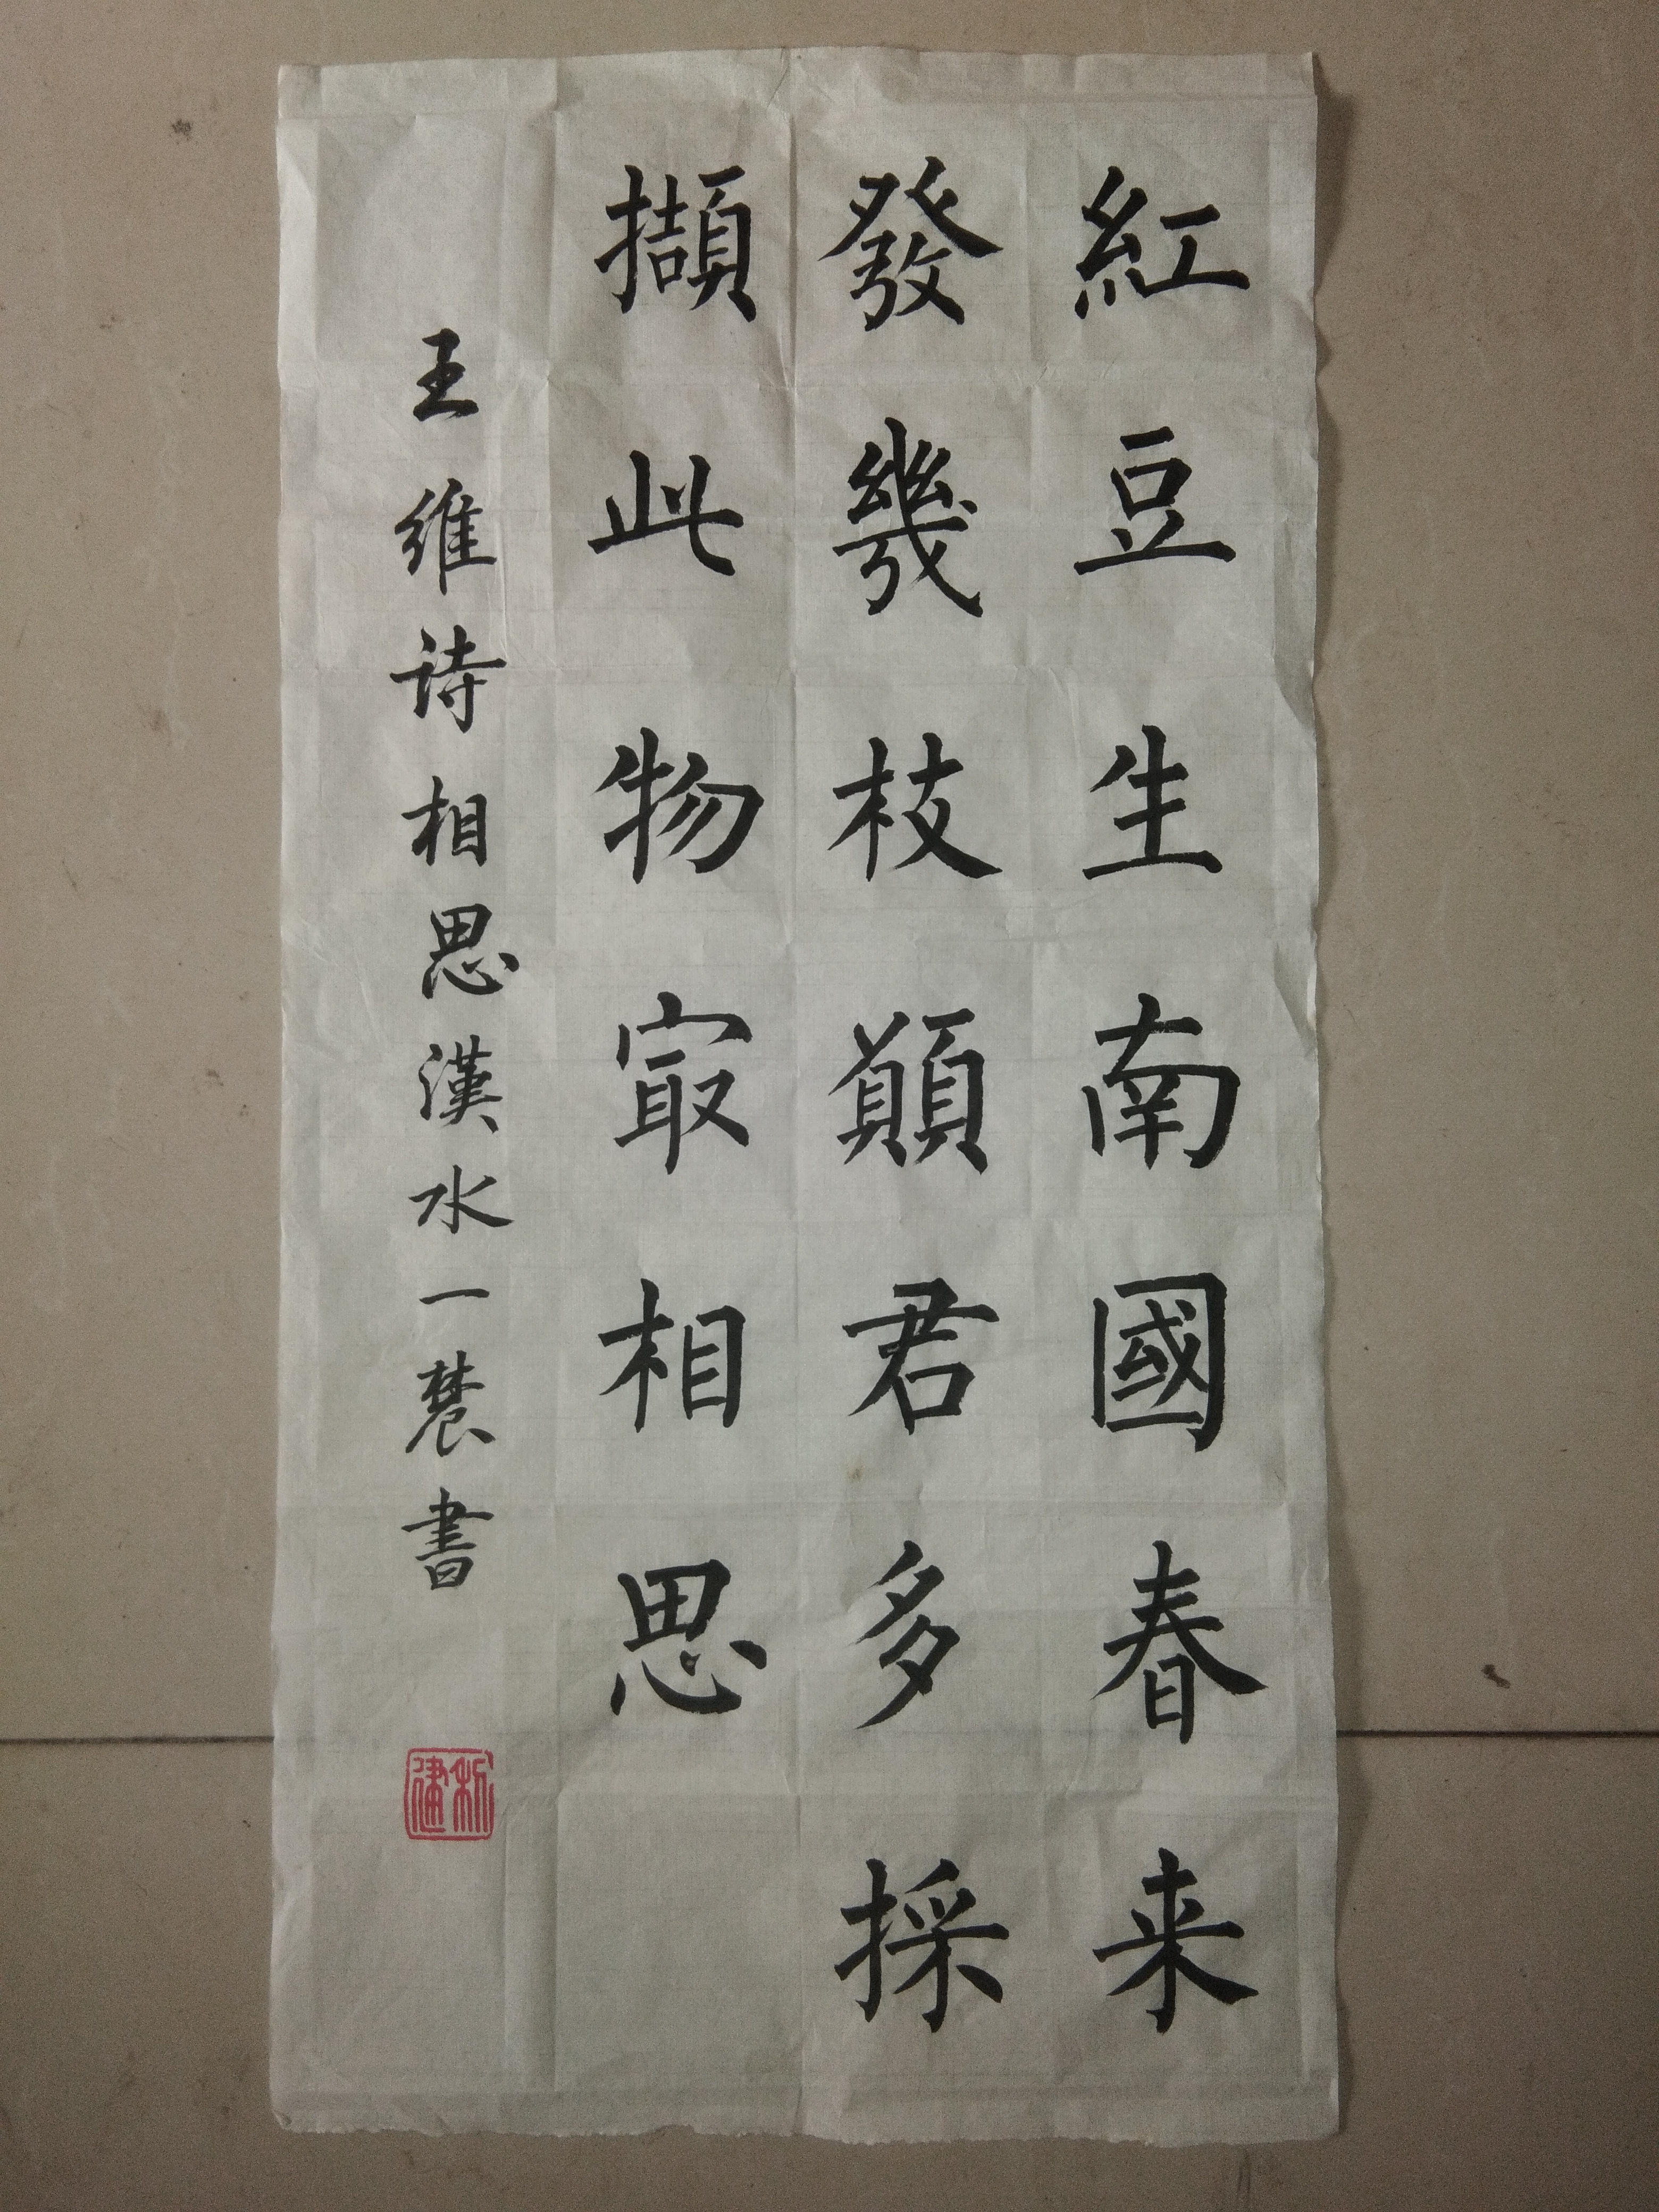 紅豆生南國春来
發幾枝願君多採
擷此物冣相思
王维诗相思漢水一書